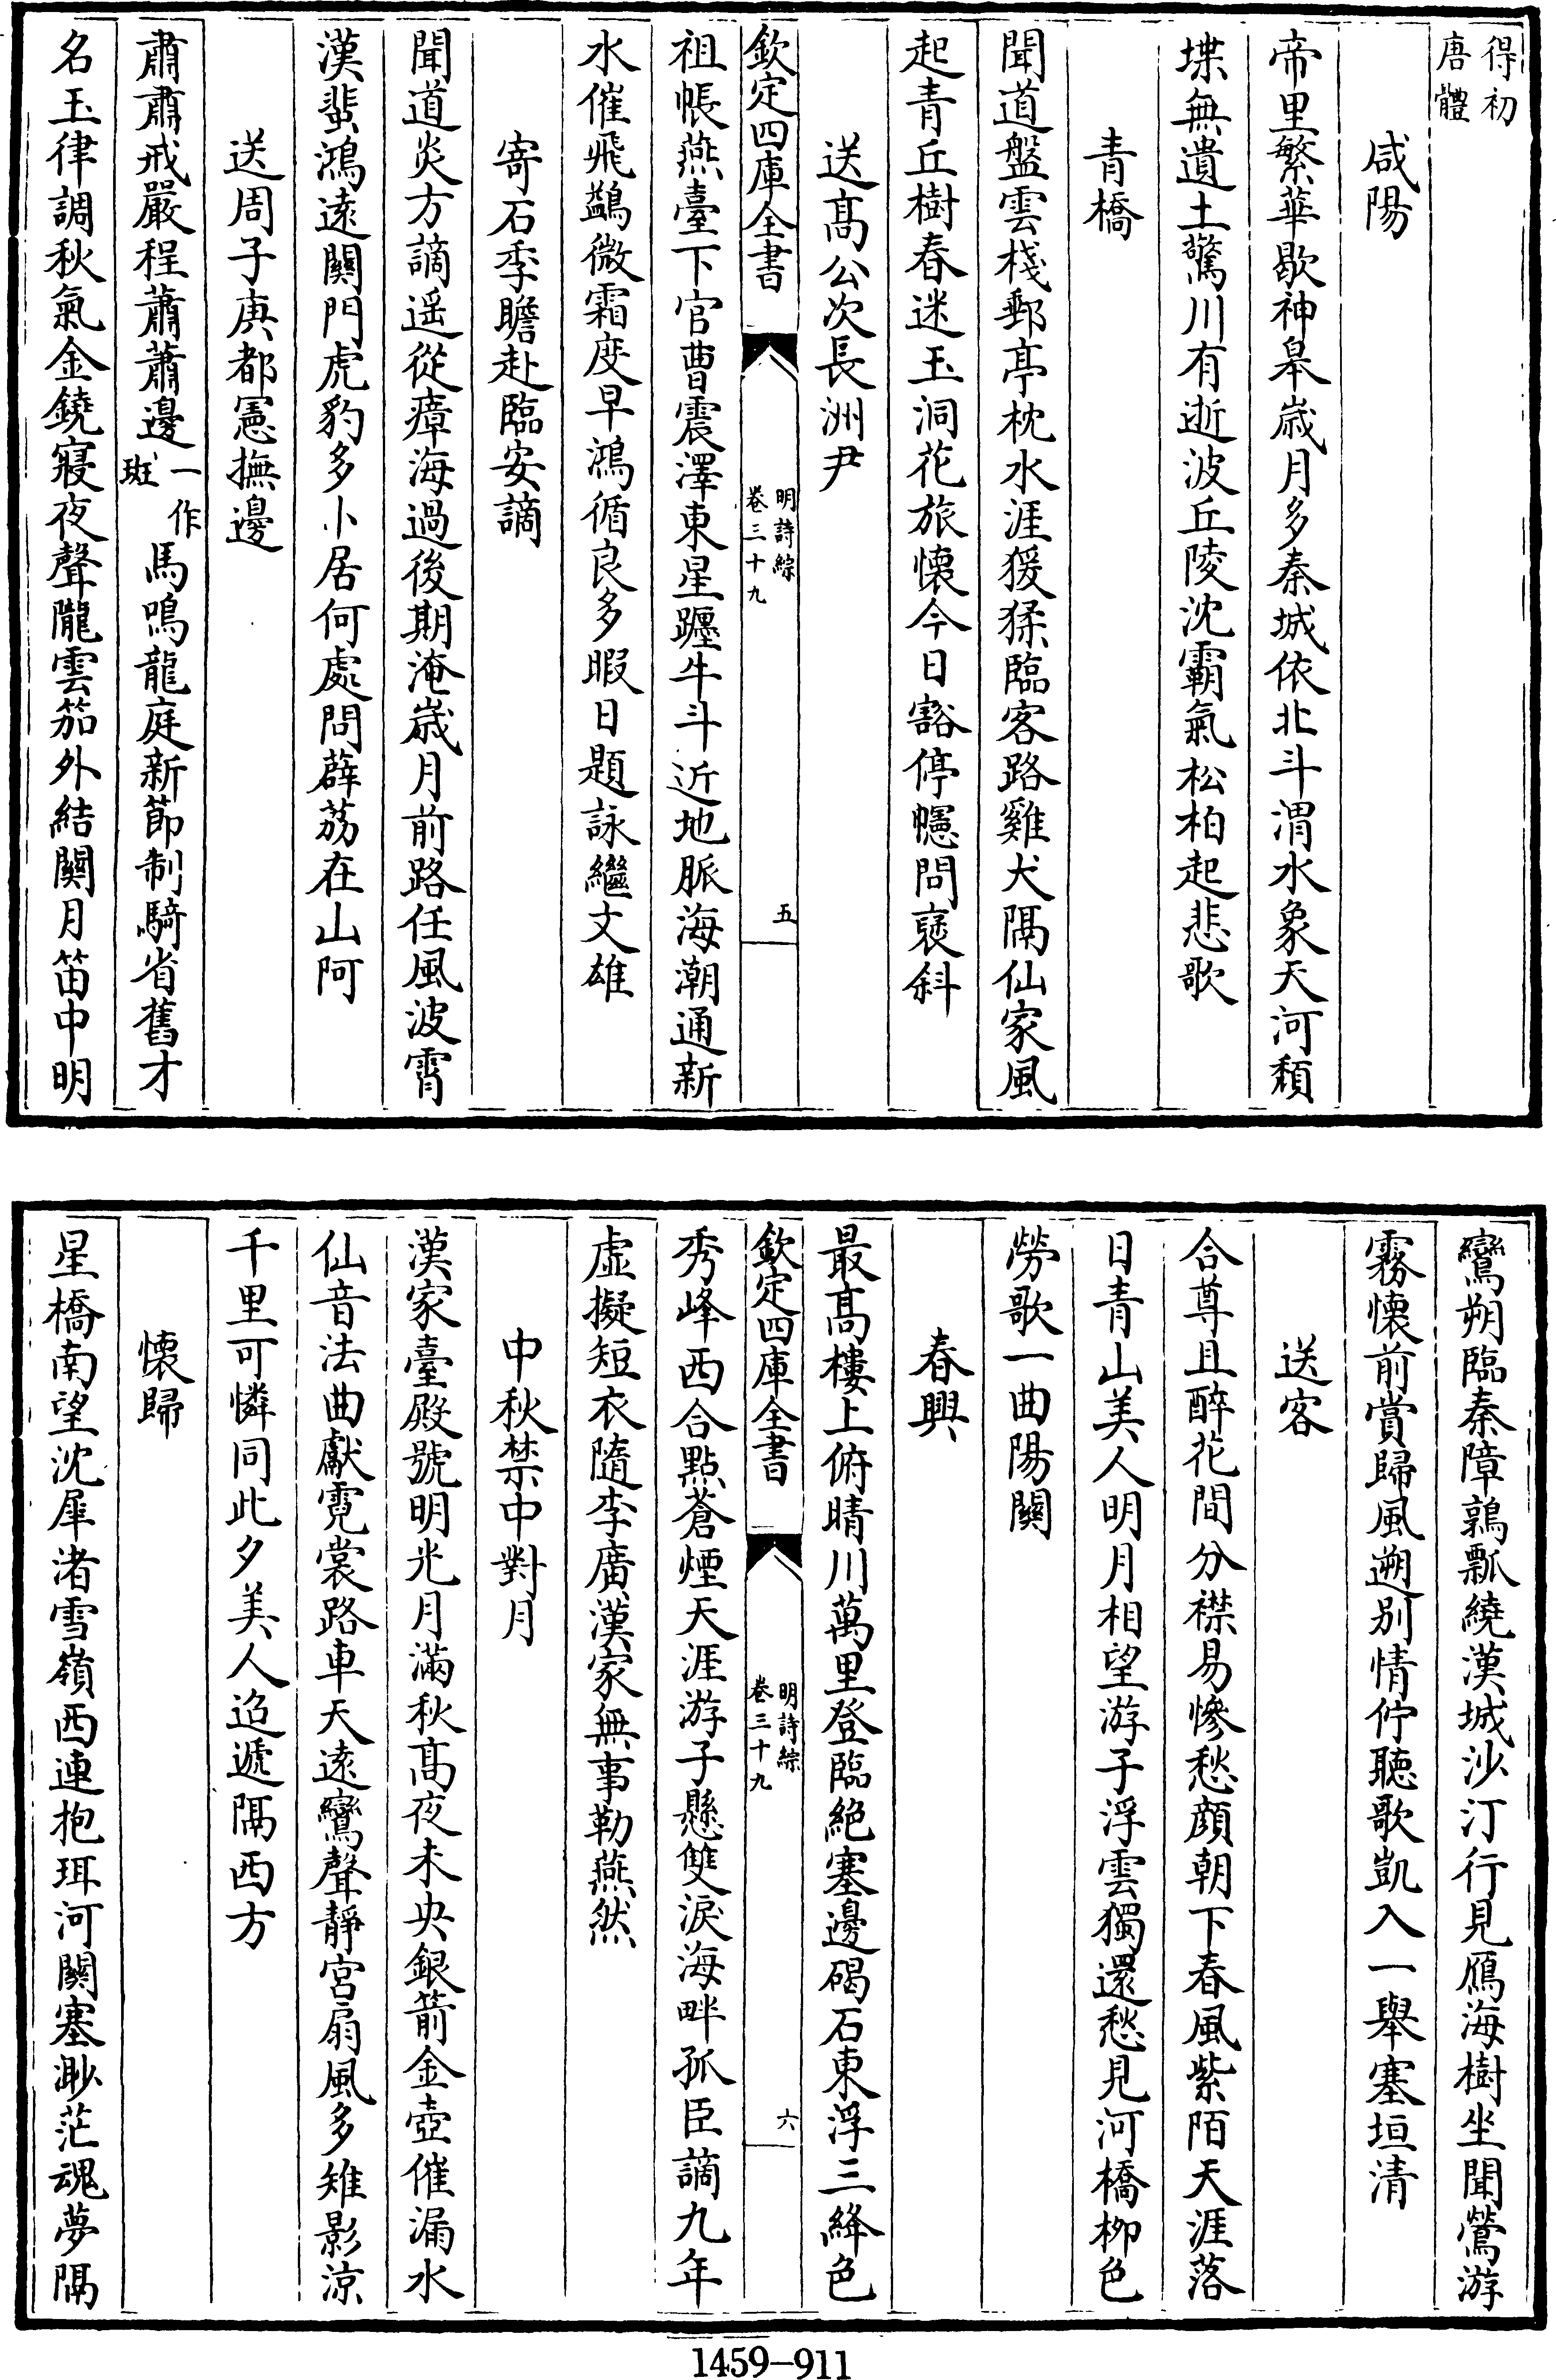 得初
唐體
咸陽
帝里繁華歇神皋歳月多秦城依北斗渭水象天河頽
堞無遺土驚川有逝波丘陵沈霸氣松柏起悲歌
青橋
聞道盤雲棧郵亭枕水涯猨猱臨客路雞犬隔仙家風
起青丘樹春迷玉洞花旅懐今日豁停幰問褒斜
送髙公次長洲尹
欽定四庫全書
明詩綜
卷三十九
五
祖帳燕臺下官曹震澤東星躔牛斗近地脈海潮通新
水催飛鷁微霜度早鴻循良多暇日題詠繼文雄
寄石季瞻赴臨安謫
聞道炎方謫遥從瘴海過後期淹歳月前路任風波霄
漢蜚鴻遠闗門虎豹多卜居何處問薜荔在山阿
送周子庚都憲撫邊
肅肅戒嚴程蕭蕭邊
一作
班
馬鳴龍庭新節制騎省舊才
名玉律調秋氣金鐃寢夜聲隴雲笳外結闗月笛中明
鸞朔臨秦障鶉瓢繞漢城沙汀行見鴈海樹坐聞鶯游
霧懐前賞歸風遡别情佇聽歌凱入一舉塞垣清
送客
合尊且醉花間分襟易慘愁顔朝下春風紫陌天涯落
日青山美人明月相望游子浮雲獨還愁見河橋柳色
勞歌一曲陽闗
春興
最髙樓上俯晴川萬里登臨絶塞邊碣石東浮三絳色
欽定四庫全書
明詩綜
卷三十九
六
秀峰西合點蒼煙天涯游子懸雙淚海畔孤臣謫九年
虚擬短衣隨李廣漢家無事勒燕然
中秋禁中對月
漢家臺殿號明光月滿秋髙夜未央銀箭金壺催漏水
仙音法曲獻霓裳路車天遠鸞聲靜宫扇風多雉影凉
千里可憐同此夕美人迢遞隔西方
懐歸
星橋南望沈犀渚雪嶺西連抱珥河闗塞渺茫魂夢隔
1459-911